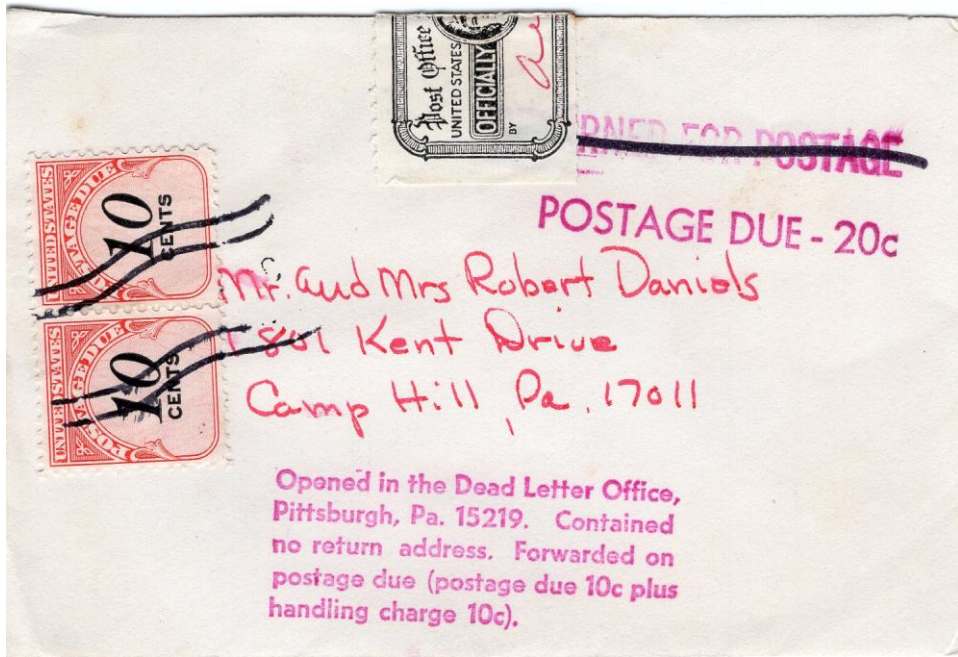 Post Office
UNITED STATES
OFFICIALLY
BY
RNED FOR POSTAGE
POSTAGE DUE - 20c
UNITED STATES
POSTAGE DUE
10
CENTS
UNITED STATES
POSTAGE DUE
10
CENTS
Mr. and Mrs Robert Daniels
1801 Kent Drive
Camp Hill, Pa. 17011
Opened in the Dead Letter Office,
Pittsburgh, Pa. 15219. Contained
no return address. Forwarded on
postage due (postage due 10c plus
handling charge 10c).